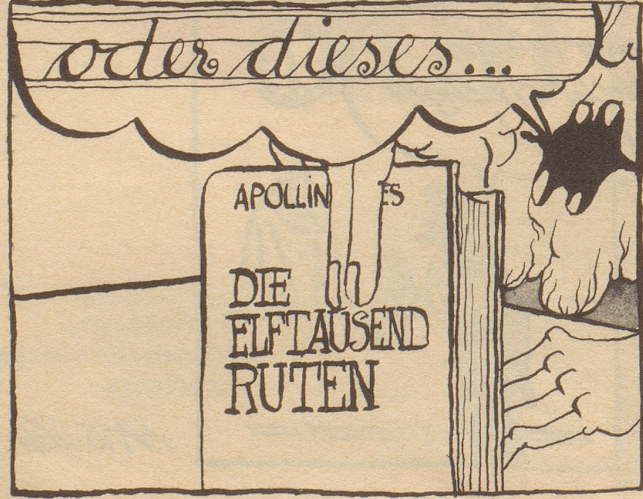 oder dieses...
APOLLIN ES
DIE
ELFTAUSEND
RUTEN